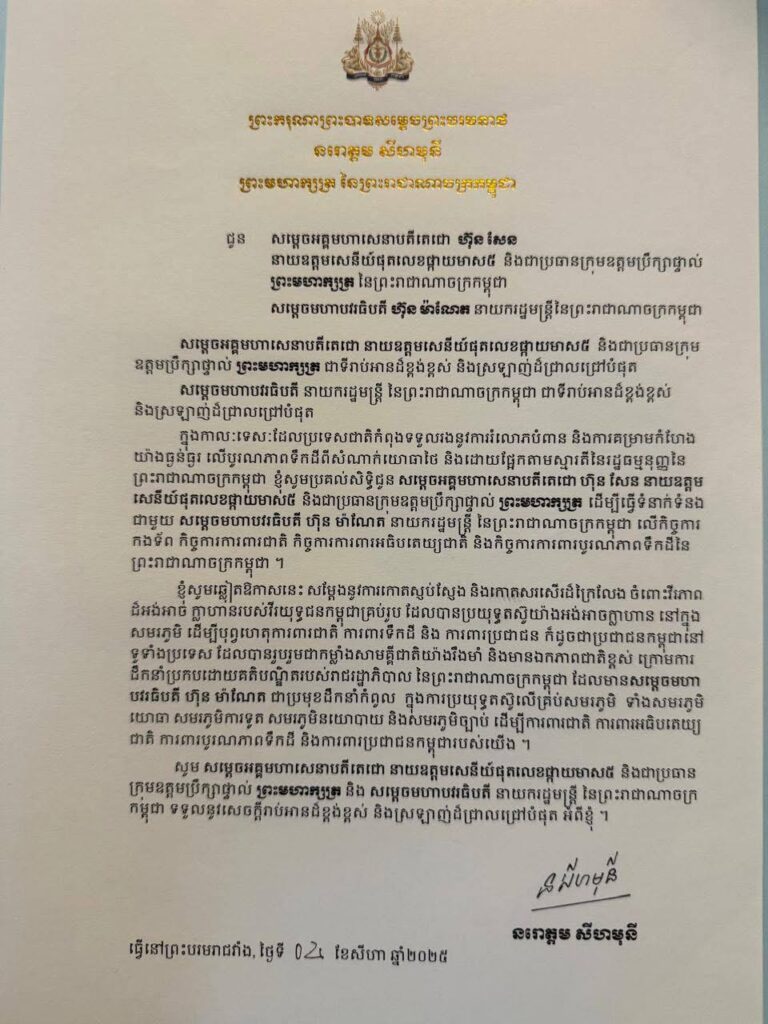 ព្រះករុណាព្រះបាទសម្តេចព្រះបរមនាថ
នរោត្តម សីហមុនី
ព្រះមហាក្សត្រ នៃព្រះរាជាណាចក្រកម្ពុជា
ជូន សម្តេចអគ្គមហាសេនាបតីតេជោ ហ៊ុន សែន
នាយឧត្តមសេនីយ៍ផុតលេខផ្កាយមាស៥ និងជាប្រធានក្រុមឧត្តមប្រឹក្សាផ្ទាល់
ព្រះមហាក្សត្រ នៃព្រះរាជាណាចក្រកម្ពុជា
សម្តេចមហាបវរធិបតី ហ៊ុន ម៉ាណែត នាយករដ្ឋមន្ត្រីនៃព្រះរាជាណាចក្រកម្ពុជា
សម្តេចអគ្គមហាសេនាបតីតេជោ នាយឧត្តមសេនីយ៍ផុតលេខផ្កាយមាស៥ និងជាប្រធានក្រុម
ឧត្តមប្រឹក្សាផ្ទាល់ ព្រះមហាក្សត្រ ជាទីរាប់អានដ៏ខ្ពង់ខ្ពស់ និងស្រឡាញ់ដ៏ជ្រាលជ្រៅបំផុត
សម្តេចមហាបវរធិបតី នាយករដ្ឋមន្ត្រី នៃព្រះរាជាណាចក្រកម្ពុជា ជាទីរាប់អានដ៏ខ្ពង់ខ្ពស់
និងស្រឡាញ់ដ៏ជ្រាលជ្រៅបំផុត
ក្នុងកាលៈទេសៈដែលប្រទេសជាតិកំពុងទទួលរងនូវការរំលោភបំពាន និងការគម្រាមកំហែង
យ៉ាងធ្ងន់ធ្ងរ លើបូរណភាពទឹកដីពីសំណាក់យោធាថៃ និងដោយផ្អែកតាមស្មារតីនៃរដ្ឋធម្មនុញ្ញនៃ
ព្រះរាជាណាចក្រកម្ពុជា ខ្ញុំសូមប្រគល់សិទ្ធិជូន សម្តេចអគ្គមហាសេនាបតីតេជោ ហ៊ុន សែន នាយឧត្តម
សេនីយ៍ផុតលេខផ្កាយមាស៥ និងជាប្រធានក្រុមឧត្តមប្រឹក្សាផ្ទាល់ ព្រះមហាក្សត្រ ដើម្បីធ្វើទំនាក់ទំនង
ជាមួយ សម្តេចមហាបវរធិបតី ហ៊ុន ម៉ាណែត នាយករដ្ឋមន្ត្រី នៃព្រះរាជាណាចក្រកម្ពុជា លើកិច្ចការ
កងទ័ព កិច្ចការការពារជាតិ កិច្ចការការពារអធិបតេយ្យជាតិ និងកិច្ចការការពារបូរណភាពទឹកដីនៃ
ព្រះរាជាណាចក្រកម្ពុជា ។
ខ្ញុំសូមឆ្លៀតឱកាសនេះ សម្តែងនូវការកោតស្ងប់ស្ងែង និងកោតសរសើរដ៏ក្រៃលែង ចំពោះវីរភាព
ដ៏អង់អាច ក្លាហានរបស់វីរយុទ្ធជនកម្ពុជាគ្រប់រូប ដែលបានប្រយុទ្ធតស៊ូយ៉ាងអង់អាចក្លាហាន នៅក្នុង
សមរភូមិ ដើម្បីបុព្វហេតុការពារជាតិ ការពារទឹកដី និង ការពារប្រជាជន ក៏ដូចជាប្រជាជនកម្ពុជានៅ
ទូទាំងប្រទេស ដែលបានរួបរួមជាកម្លាំងសាមគ្គីជាតិយ៉ាងរឹងមាំ និងមានឯកភាពជាតិខ្ពស់ ក្រោមការ
ដឹកនាំប្រកបដោយគតិបណ្ឌិតរបស់រាជរដ្ឋាភិបាល នៃព្រះរាជាណាចក្រកម្ពុជា ដែលមានសម្តេចមហា
បវរធិបតី ហ៊ុន ម៉ាណែត ជាប្រមុខដឹកនាំកំពូល ក្នុងការប្រយុទ្ធតស៊ូលើគ្រប់សមរភូមិ ទាំងសមរភូមិ
យោធា សមរភូមិការទូត សមរភូមិនយោបាយ និងសមរភូមិច្បាប់ ដើម្បីការពារជាតិ ការពារអធិបតេយ្យ
ជាតិ ការពារបូរណភាពទឹកដី និងការពារប្រជាជនកម្ពុជារបស់យើង ។
សូម សម្តេចអគ្គមហាសេនាបតីតេជោ នាយឧត្តមសេនីយ៍ផុតលេខផ្កាយមាស៥ និងជាប្រធាន
ក្រុមឧត្តមប្រឹក្សាផ្ទាល់ ព្រះមហាក្សត្រ និង សម្តេចមហាបវរធិបតី នាយករដ្ឋមន្ត្រី នៃព្រះរាជាណាចក្រ
កម្ពុជា ទទួលនូវសេចក្តីរាប់អានដ៏ខ្ពង់ខ្ពស់ និងស្រឡាញ់ដ៏ជ្រាលជ្រៅបំផុត អំពីខ្ញុំ ។
ន សីហមុនី
នរោត្តម សីហមុនី
ធ្វើនៅព្រះបរមរាជវាំង, ថ្ងៃទី ០២ ខែសីហា ឆ្នាំ២០២៥